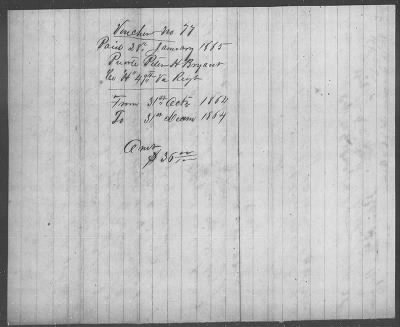 Voucher No 77
Paid 28th January 1865
Private Peter H Bryant
Co "H" 47th Va Regt
From 31st Octr 1864
To 31st Decem 1864
Amt
$36 00